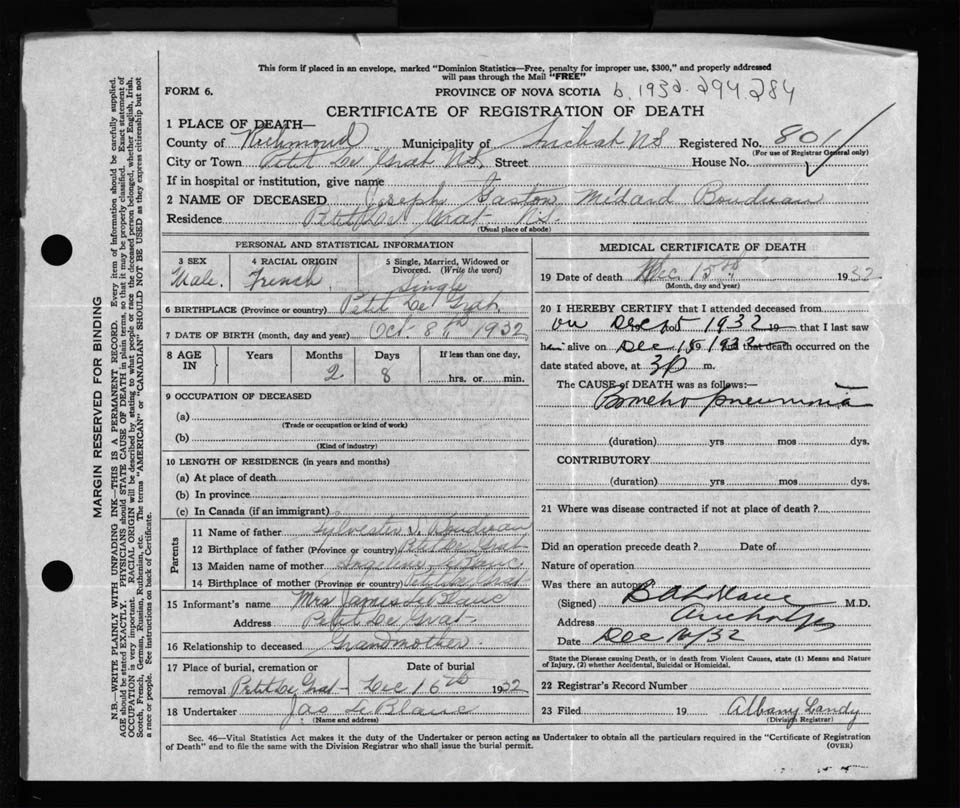 This form if placed in an envelope, marked "Dominion Statistics—Free, penalty for improper use, $300," and properly addressed
will pass through the Mail "FREE"
FORM 6.
PROVINCE OF NOVA SCOTIA b. 1932. 294 284
CERTIFICATE OF REGISTRATION OF DEATH
1 PLACE OF DEATH—
County of Richmond Municipality of Arichat NS Registered No. 801
(For use of Registrar General only)
City or Town Petit De Grat NS. Street House No.
If in hospital or institution, give name
2 NAME OF DECEASED Joseph Gaston Milard Boudreau
Residence Petit De Grat N.S.
(Usual place of abode)
PERSONAL AND STATISTICAL INFORMATION
3 SEX 4 RACIAL ORIGIN 5 Single, Married, Widowed or
Divorced. (Write the word)
Male. French Single
6 BIRTHPLACE (Province or country) Petit De Grat.
7 DATE OF BIRTH (month, day and year) Oct 8th 1932
8 AGE IN Years Months Days If less than one day,
2 8 hrs. or min.
9 OCCUPATION OF DECEASED
(a)
(Trade or occupation or kind of work)
(b)
(Kind of industry)
10 LENGTH OF RESIDENCE (in years and months)
(a) At place of death
(b) In province
(c) In Canada (if an immigrant)
Parents
11 Name of father Sylvester J. Boudreau
12 Birthplace of father (Province or country) Petit De Grat
13 Maiden name of mother LeBlanc
14 Birthplace of mother (Province or country) Petit De Grat
15 Informant's name Mrs James LeBlanc
Address Petit De Grat
16 Relationship to deceased Grandmother.
17 Place of burial, cremation or Date of burial
removal Petit De Grat Dec 16th 1932
18 Undertaker Jas LeBlanc
(Name and address)
MEDICAL CERTIFICATE OF DEATH
19 Date of death Dec. 15th 1932
(Month, day and year)
20 I HEREBY CERTIFY that I attended deceased from
on Dec 15 1932 19 that I last saw
h alive on Dec 15 1932 and that death occurred on the
date stated above, at 3 p m.
The CAUSE OF DEATH was as follows:—
Broncho pneumonia
(duration) yrs mos dys.
CONTRIBUTORY
(duration) yrs mos dys.
21 Where was disease contracted if not at place of death?
Did an operation precede death? Date of
Nature of operation
Was there an autopsy?
(Signed) B A LeBlanc M.D.
Address Arichat
Date Dec 16/32
State the Disease causing Death, or in death from Violent Causes, state (1) Means and Nature
of Injury, (2) whether Accidental, Suicidal or Homicidal.
22 Registrar's Record Number
23 Filed 19 Albany Landy
(Division Registrar)
Sec. 46—Vital Statistics Act makes it the duty of the Undertaker or person acting as Undertaker to obtain all the particulars required in the "Certificate of Registration
of Death" and to file the same with the Division Registrar who shall issue the burial permit.
(OVER)
MARGIN RESERVED FOR BINDING
N.B.—WRITE PLAINLY WITH UNFADING INK—THIS IS A PERMANENT RECORD. Every item of information should be carefully supplied.
AGE should be stated EXACTLY. PHYSICIANS should STATE CAUSE OF DEATH in plain terms, so that it may be properly classified. Exact statement of
OCCUPATION is very important. RACIAL ORIGIN will be described by stating to what people or race the deceased person belonged, whether English, Irish,
Scotch, French, German, Russian, Ruthenian, etc. The terms "AMERICAN" or "CANADIAN" SHOULD NOT BE USED as they express citizenship but not
a race or people. See instructions on back of Certificate.